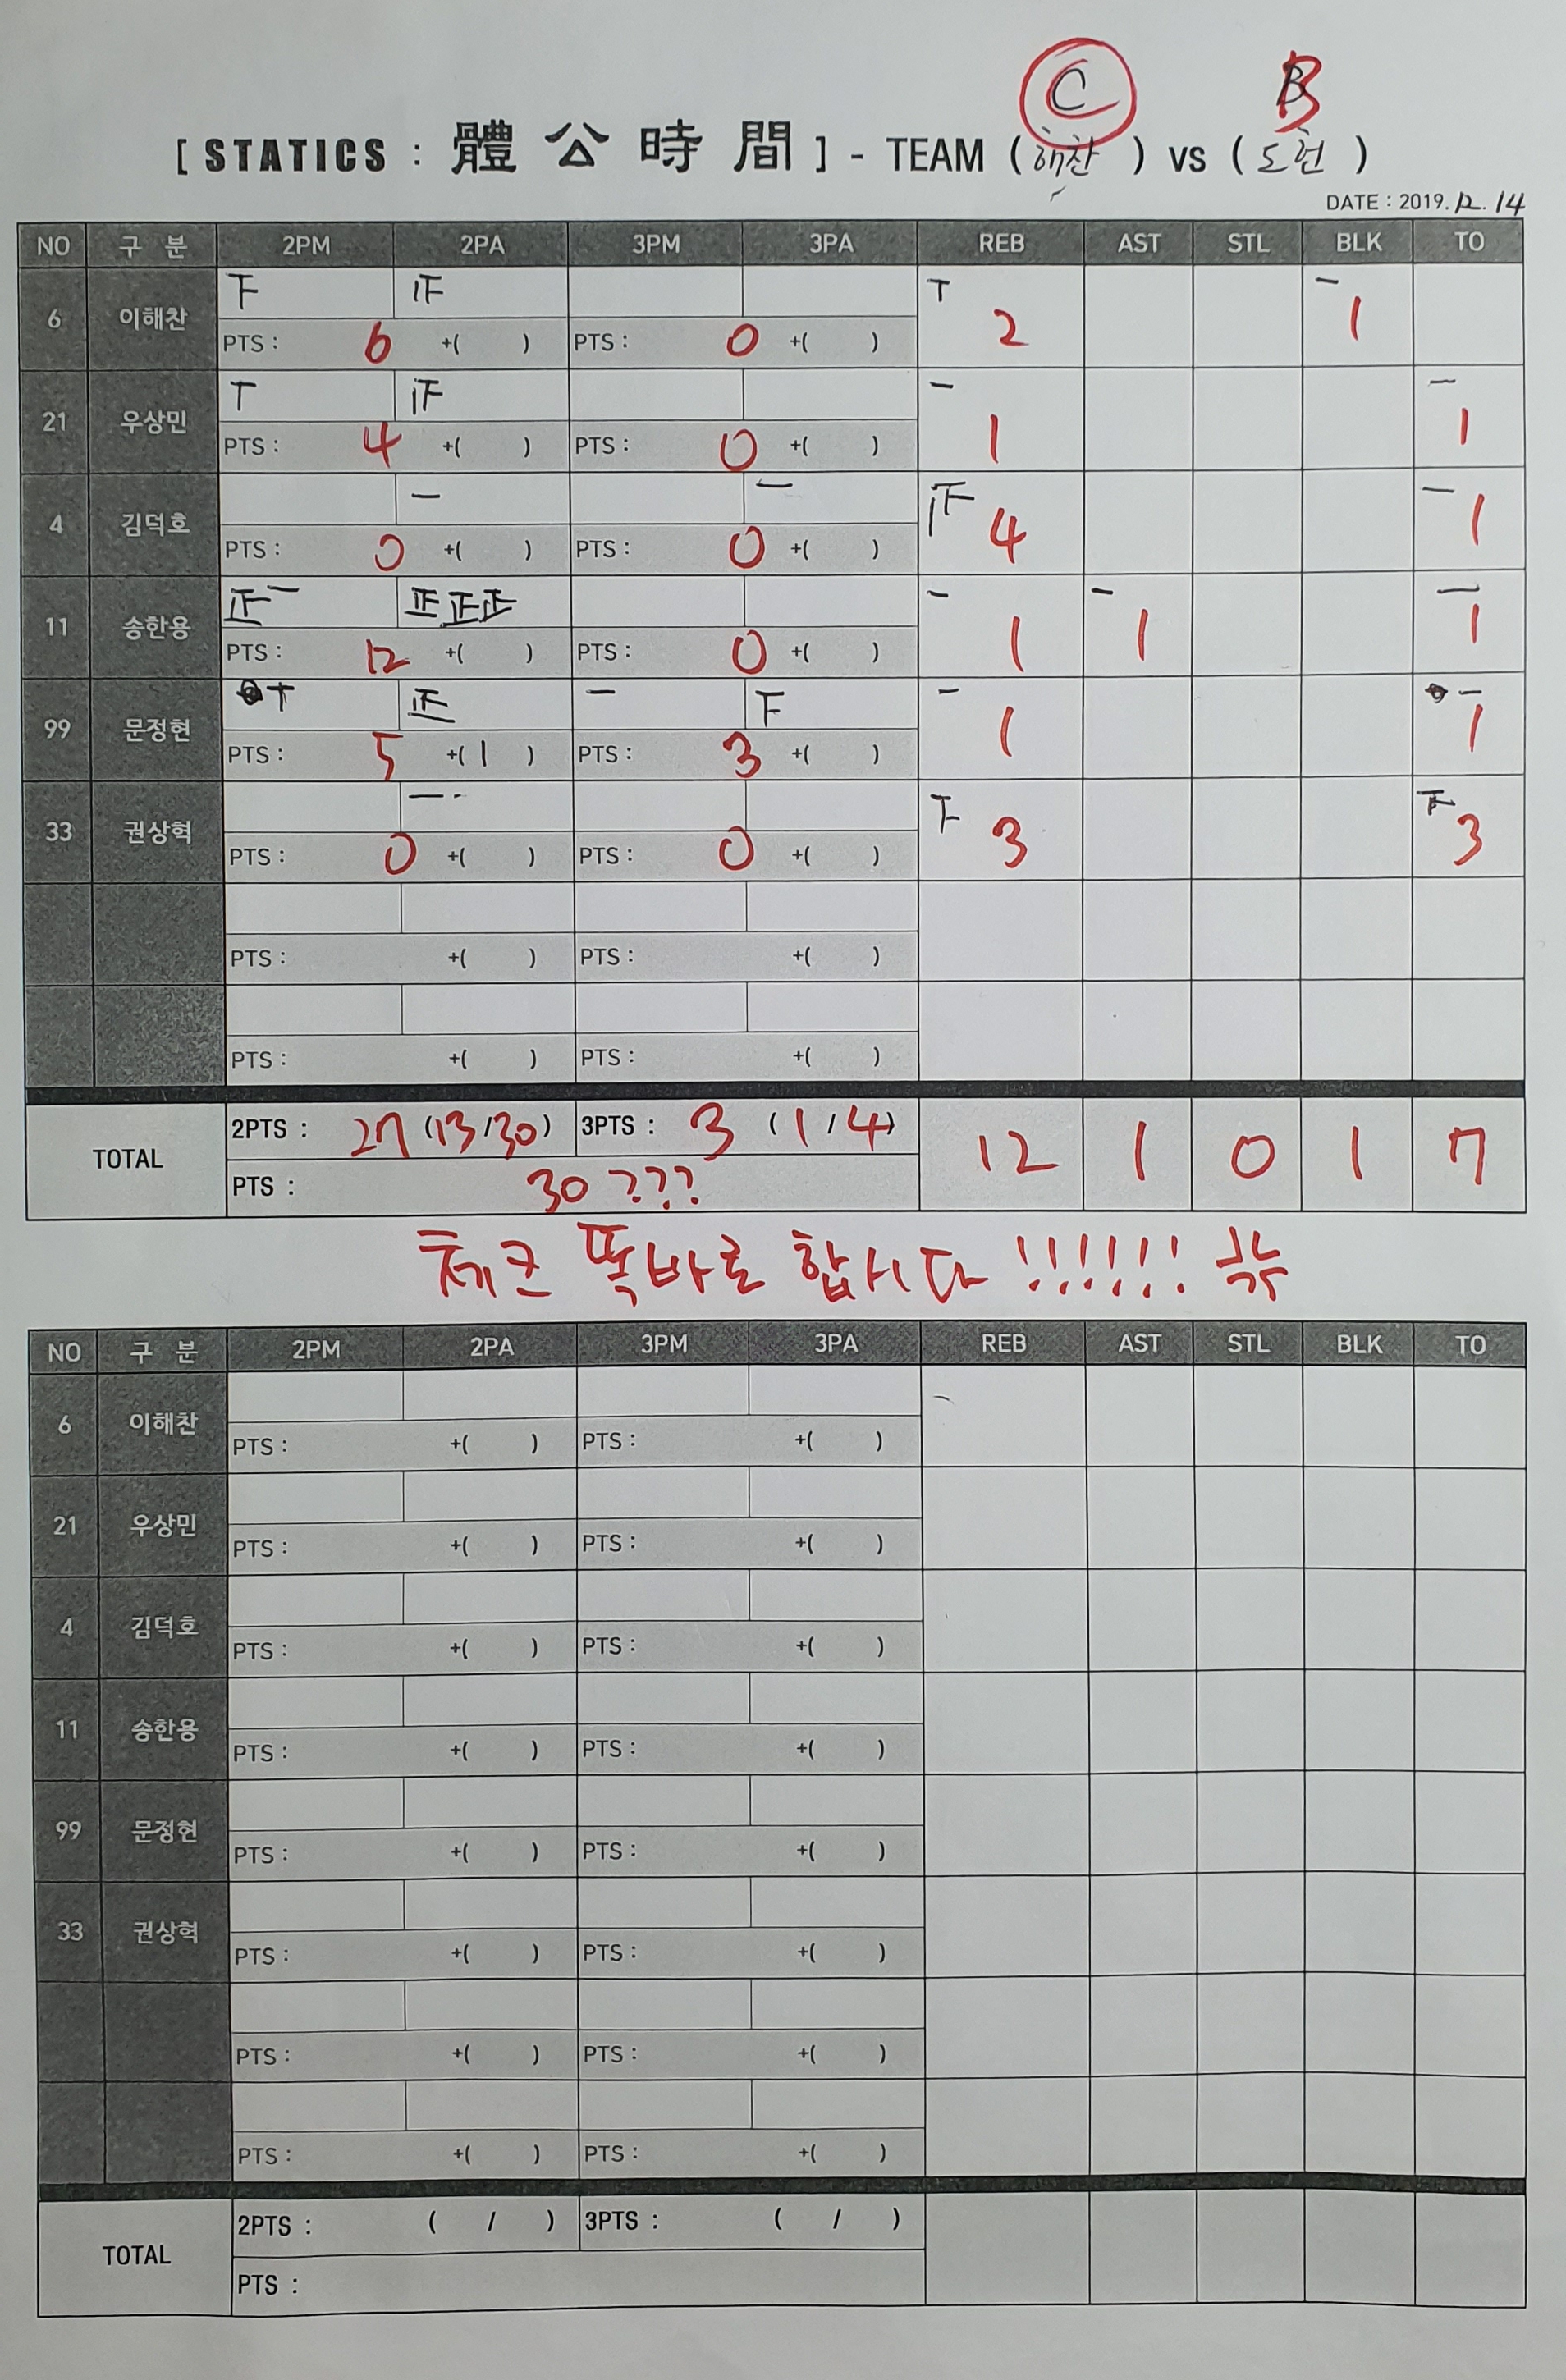 C B
[ STATICS : 體公時間 ] - TEAM ( 해찬 ) vs ( 도현 )
DATE : 2019. 12. 14
NO 구 분 2PM 2PA 3PM 3PA REB AST STL BLK TO
6 이해찬 2 1
PTS : 6 +( ) PTS : 0 +( )
21 우상민 1 1
PTS : 4 +( ) PTS : 0 +( )
4 김덕호 4 1
PTS : 0 +( ) PTS : 0 +( )
11 송한용 正一 正正正 1 1 1
PTS : 12 +( ) PTS : 0 +( )
99 문정현 正 1 1
PTS : 5 +( 1 ) PTS : 3 +( )
33 권상혁 3 3
PTS : 0 +( ) PTS : 0 +( )
PTS : +( ) PTS : +( )
PTS : +( ) PTS : +( )
TOTAL 2PTS : 27 (13/30) 3PTS : 3 ( 1 / 4 ) 12 1 0 1 7
PTS : 30 ???
체크 똑바로 합시다 !!!!!!
NO 구 분 2PM 2PA 3PM 3PA REB AST STL BLK TO
6 이해찬
PTS : +( ) PTS : +( )
21 우상민
PTS : +( ) PTS : +( )
4 김덕호
PTS : +( ) PTS : +( )
11 송한용
PTS : +( ) PTS : +( )
99 문정현
PTS : +( ) PTS : +( )
33 권상혁
PTS : +( ) PTS : +( )
PTS : +( ) PTS : +( )
PTS : +( ) PTS : +( )
TOTAL 2PTS : ( / ) 3PTS : ( / )
PTS :